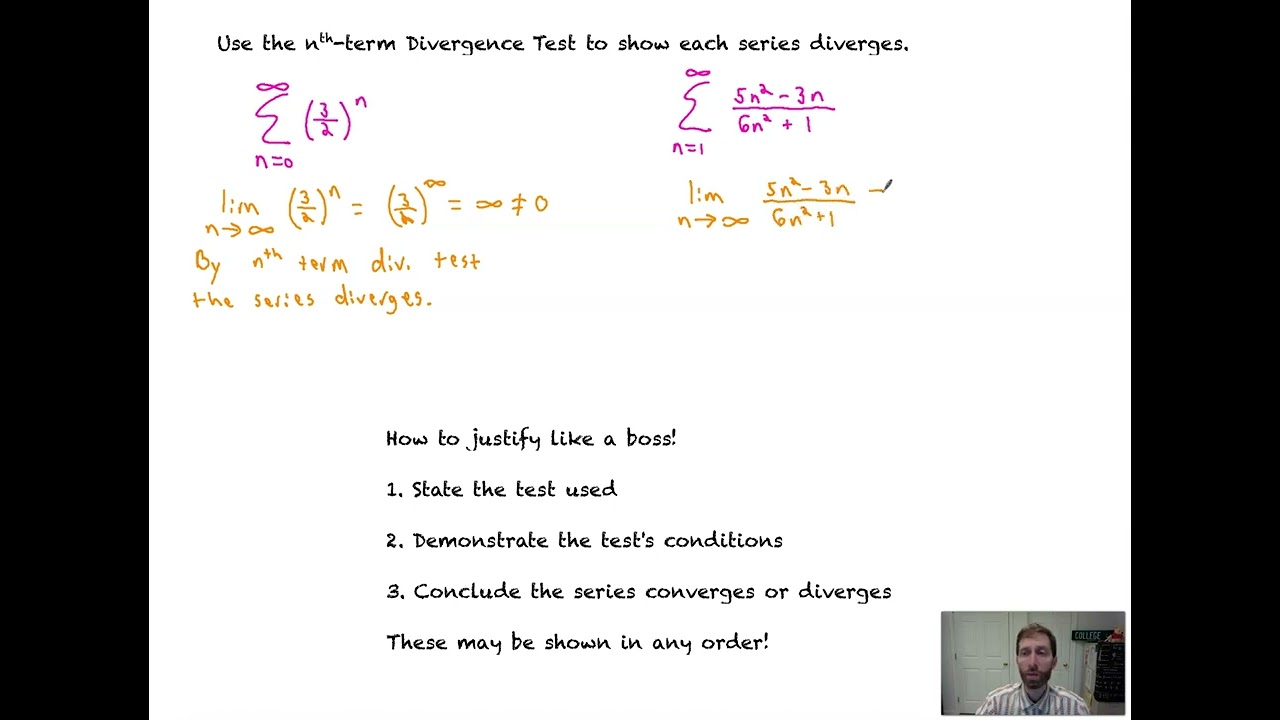 Use the nᵗʰ-term Divergence Test to show each series diverges.
∞
∑ (3/2)ⁿ
n=0
lim (3/2)ⁿ = (3/2)^∞ = ∞ ≠ 0
n→∞
By nᵗʰ term div. test
the series diverges.
∞
∑ (5n² - 3n)/(6n² + 1)
n=1
lim (5n² - 3n)/(6n² + 1) -
n→∞
How to justify like a boss!
1. State the test used
2. Demonstrate the test's conditions
3. Conclude the series converges or diverges
These may be shown in any order!
COLLEGE